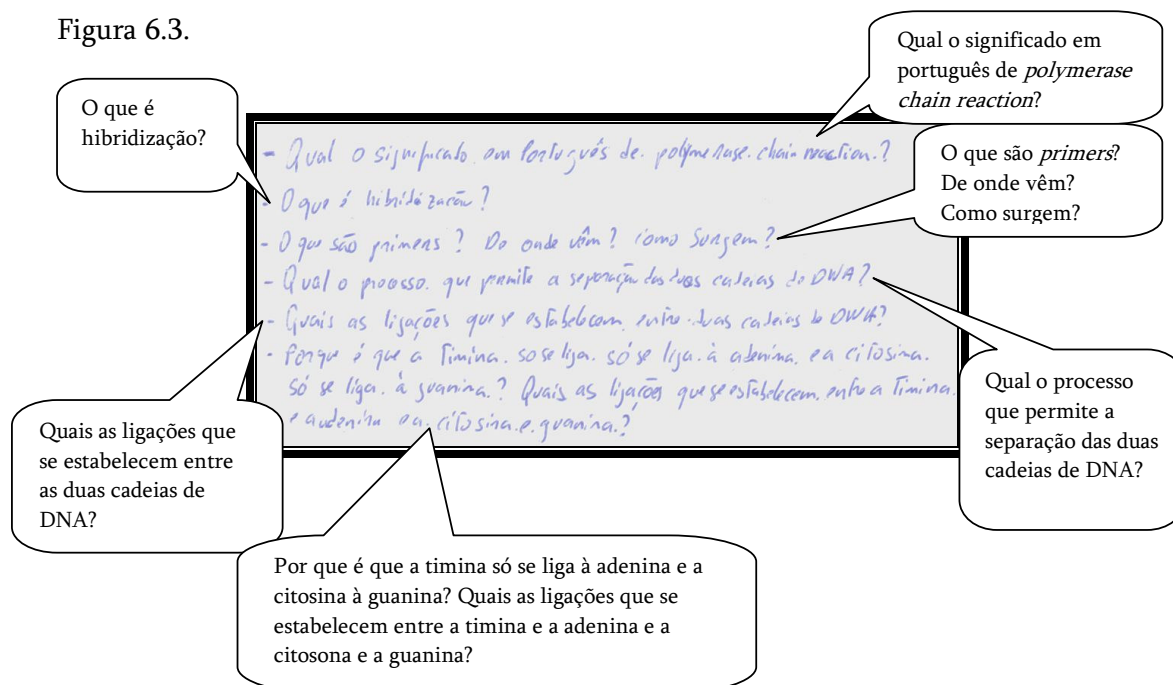 Figura 6.3.
Qual o significado em
português de polymerase
chain reaction?
O que é
hibridização?
- Qual o significado em Português de polymerase chain reaction?
- O que é hibridização?
- O que são primers? De onde vêm? Como Surgem?
- Qual o processo que permite a separação das duas cadeias de DNA?
- Quais as ligações que se estabelecem entre duas cadeias de DNA?
- Porque é que a Timina só se liga só se liga à adenina e a citosina
só se liga à guanina? Quais as ligações que se estabelecem entre a Timina
e a adenina e a citosina e guanina?
O que são primers?
De onde vêm?
Como surgem?
Qual o processo
que permite a
separação das duas
cadeias de DNA?
Quais as ligações que
se estabelecem entre
as duas cadeias de
DNA?
Por que é que a timina só se liga à adenina e a
citosina à guanina? Quais as ligações que se
estabelecem entre a timina e a adenina e a
citosona e a guanina?